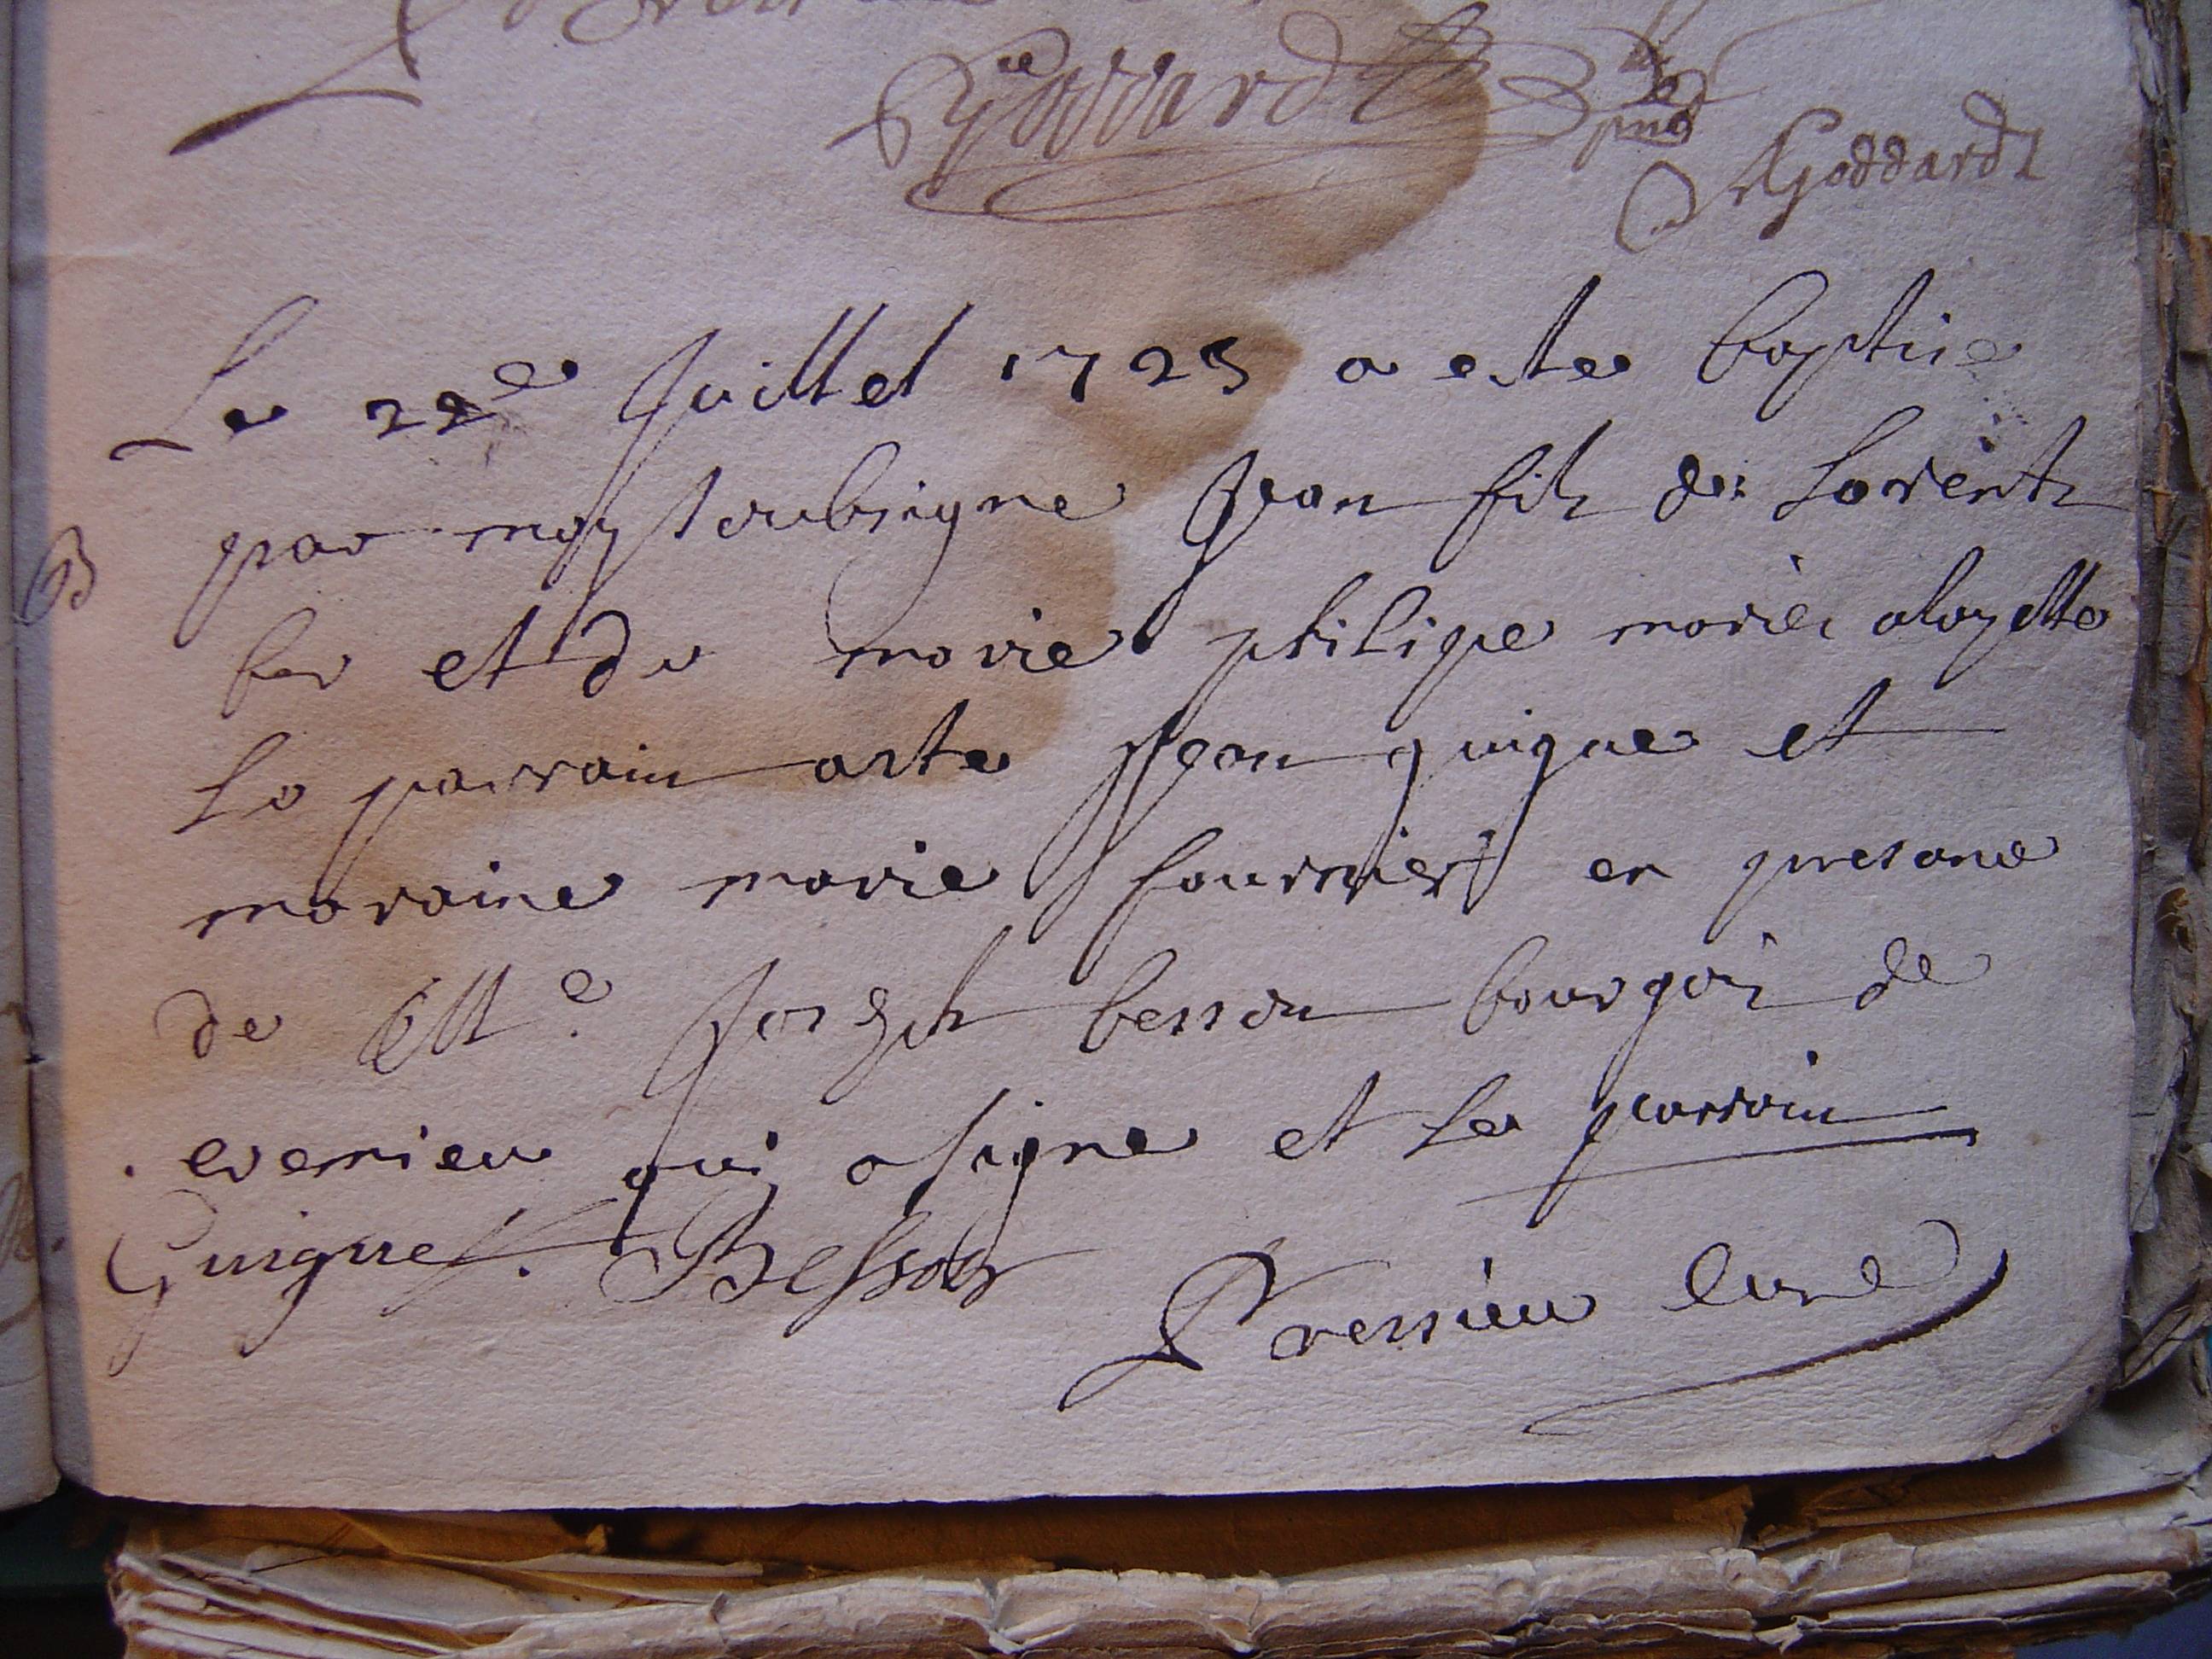 Goddard
Goddard
Le 22e Juillet 1725 a este baptise
par moy soubsigne Jean fils de Lorent
B
ber et de marie philipe mariés
Le parrain a este Jean guigue et
maraine marie fournier en presance
de Me Joseph besson bourgois de
evenieu qui a signe et le parrain
Guigue. Besson
Pressieu Cure